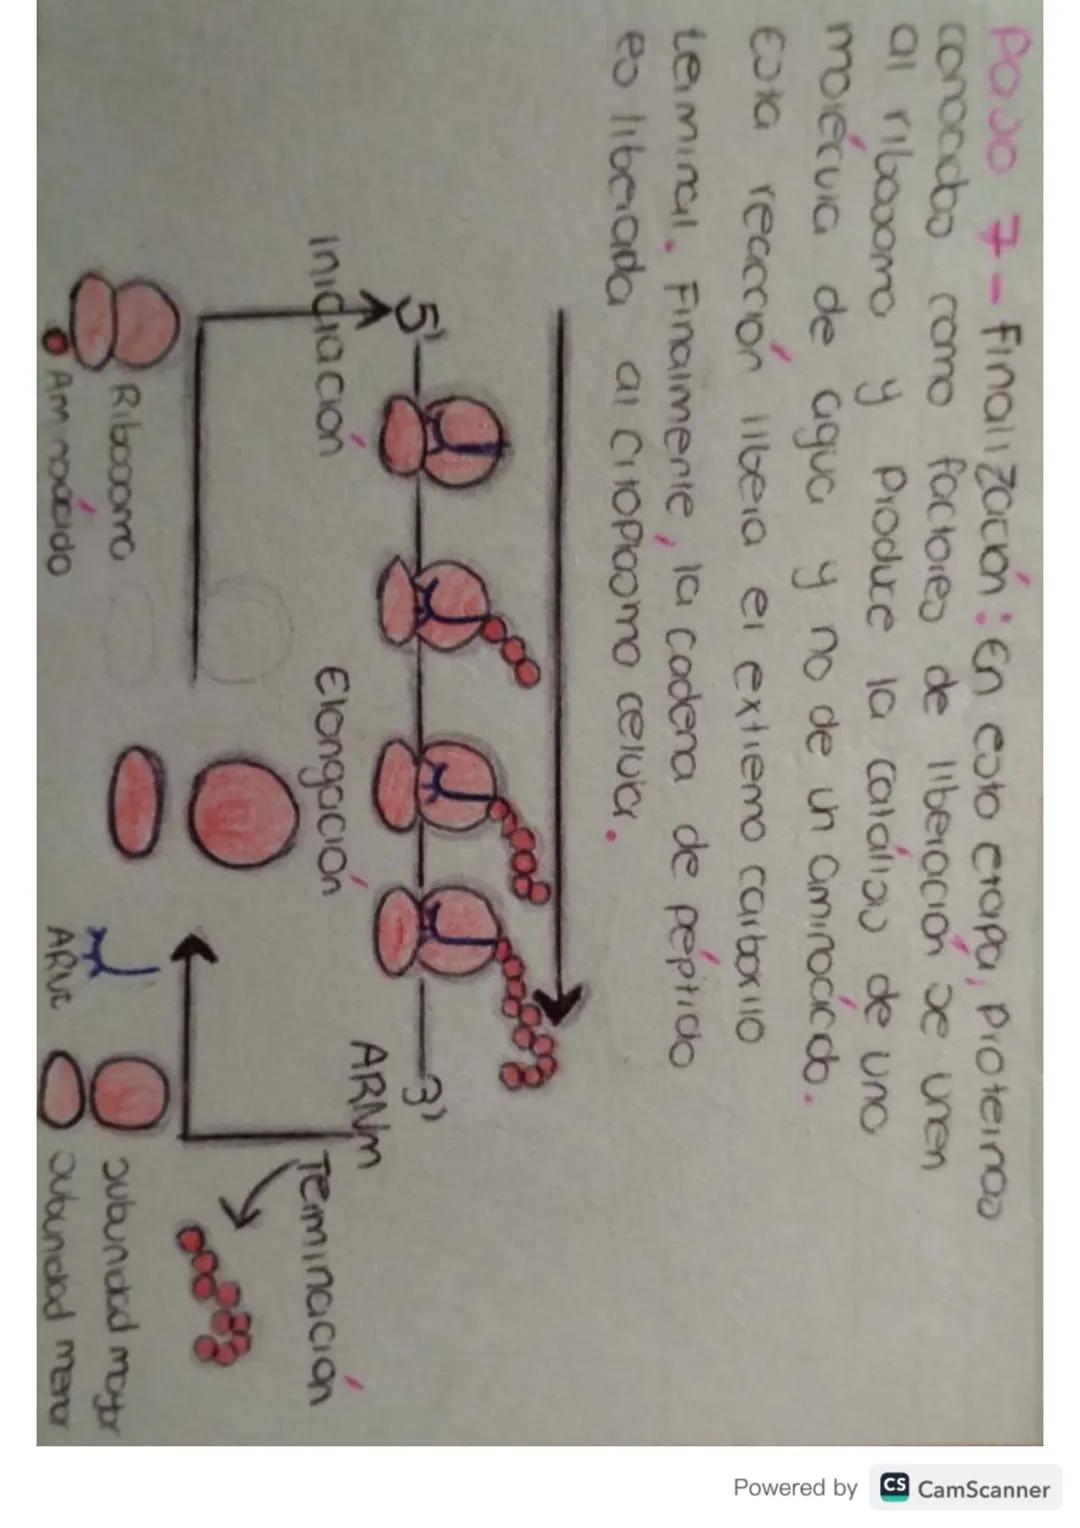 Paso 7 - Finalización: En esta etapa, proteínas
conocidas como factores de liberación se unen
al ribosoma y produce la catálisis de una
molécula de agua y no de un aminoácido.
Esta reacción libera el extremo carboxilo
terminal. Finalmente, la cadena de péptido
es liberada al citoplasma celular.
5'
3'
ARNm
Iniciación
Elongación
Terminación
Ribosoma
Aminoácido
ARNt
subunidad mayor
subunidad menor
Powered by CS CamScanner